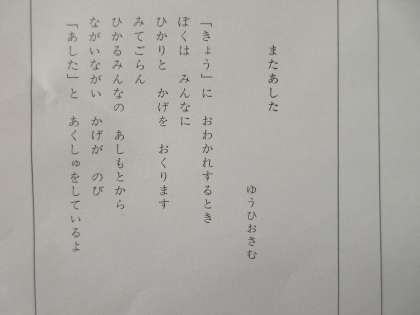 またあした
ゆうひおさむ
「きょう」に　おわかれするとき
ぼくは　みんなに
ひかりと　かげを　おくります
みてごらん
ひかるみんなの　あしもとから
ながいながい　かげが　のび
「あした」と　あくしゅをしているよ